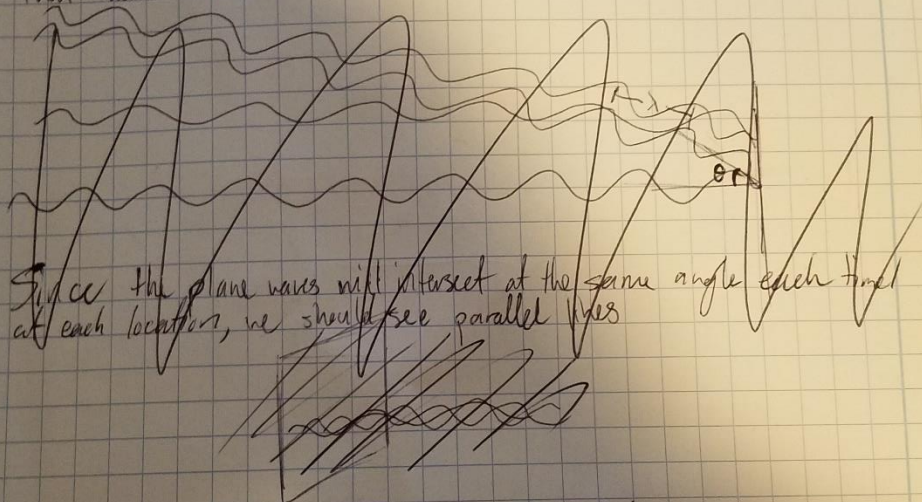 λ
θ
Since the plane waves will intersect at the same angle each time
at each location, we should see parallel lines